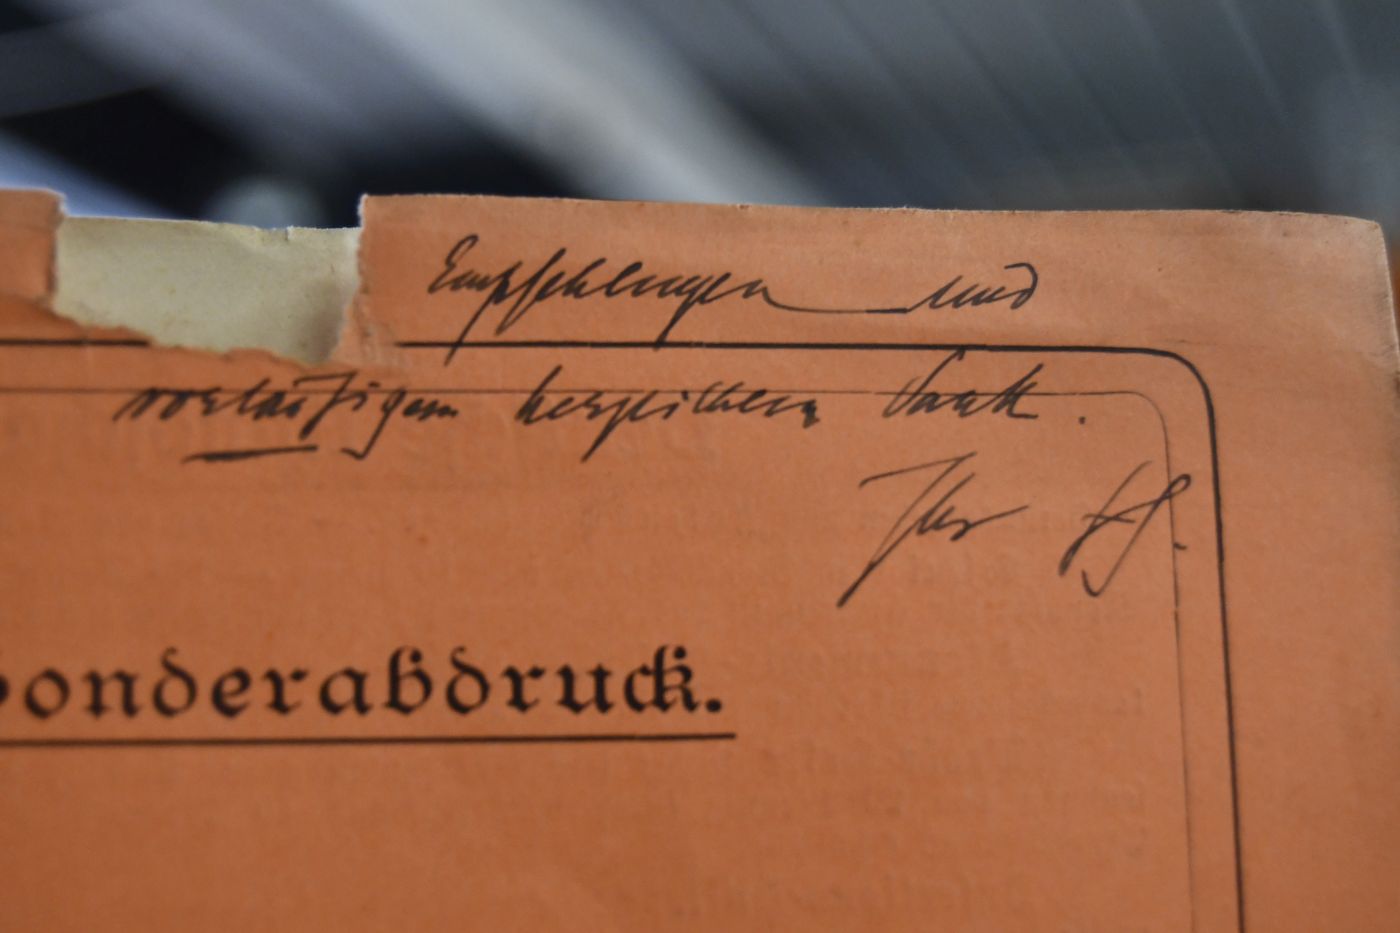 Empfehlungen und
vorläufigem herzlichem Dank.
Ihr
Sonderabdruck.